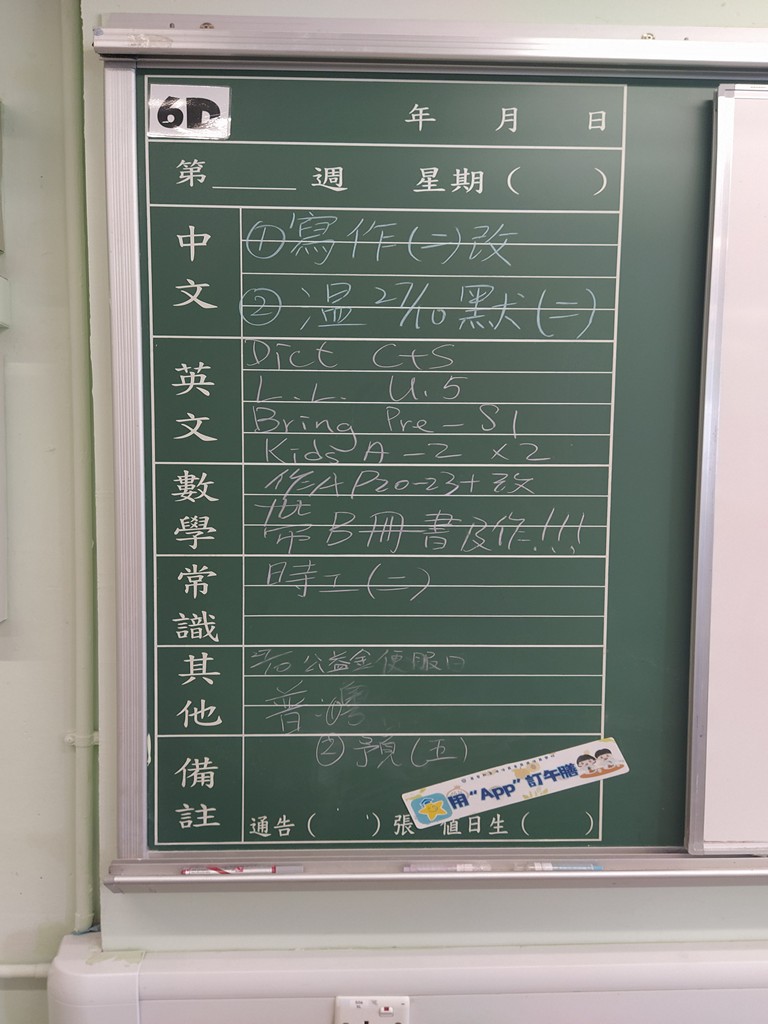 6D 年 月 日
第 週 星期( )
中文
①寫作(二)改
②溫27/10默(二)
英文
Dict C+S
L.L. U.5
Bring Pre-S1
Kids A-2 x2
數學
作A P20-23+改
帶B冊書及作!!!
常識
時工(二)
其他
公益金便服日
普:①
②預(五)
備註
用"App"訂午膳
通告( )張 值日生( )